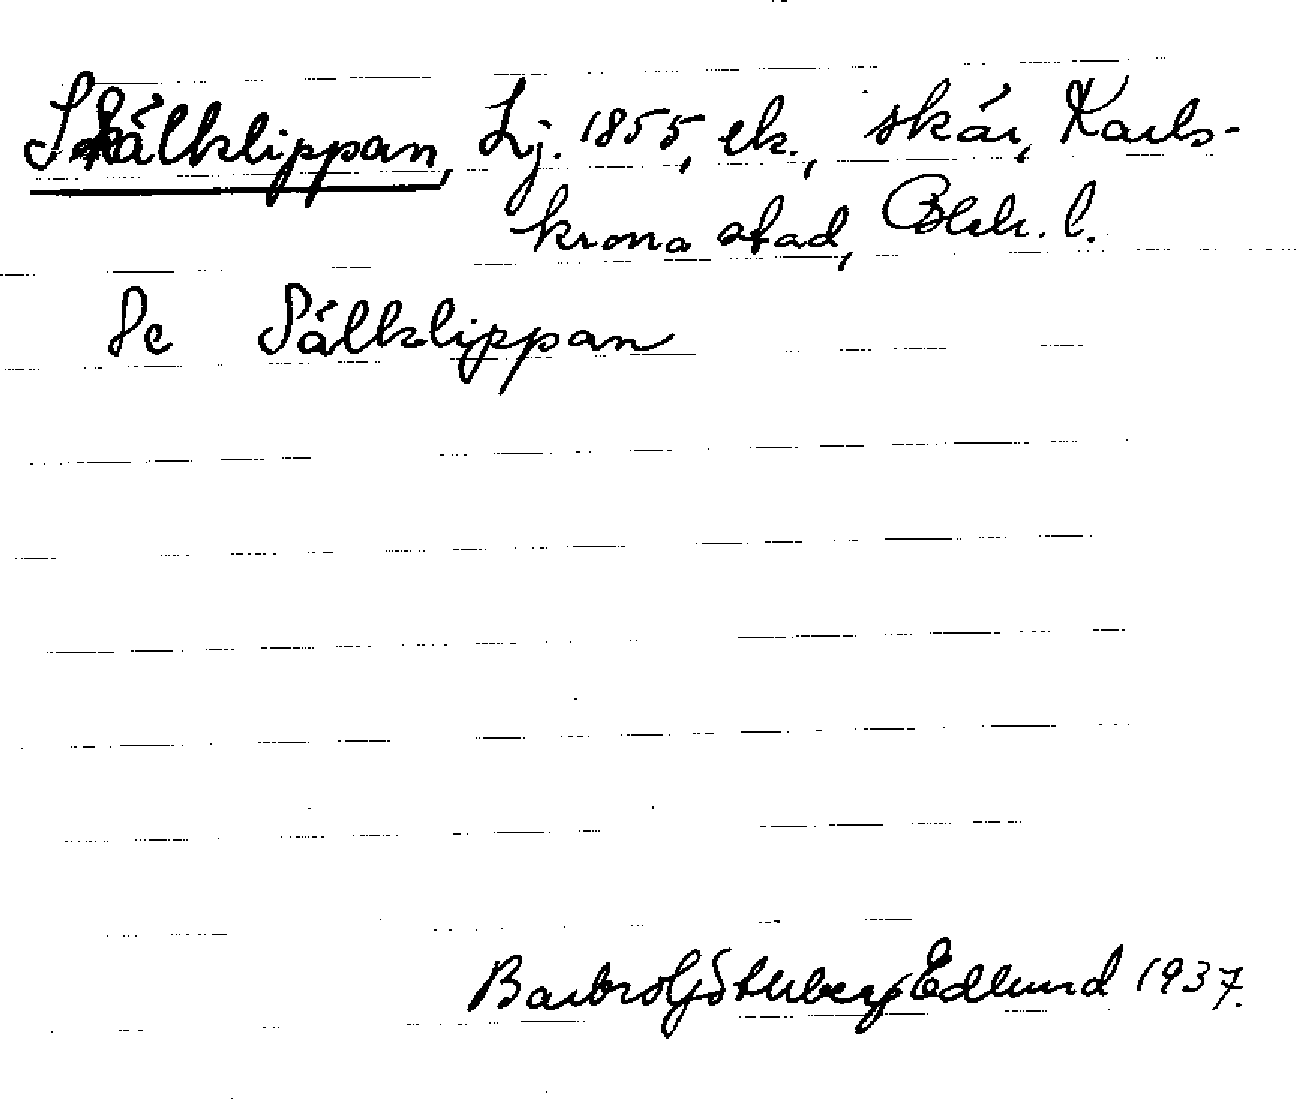 Skälklippan, Lj. 1855, ek., skär, Karls-
krona stad, Blek. l.
Se Sälklippan
Barbro Götlberg Edlund 1937.